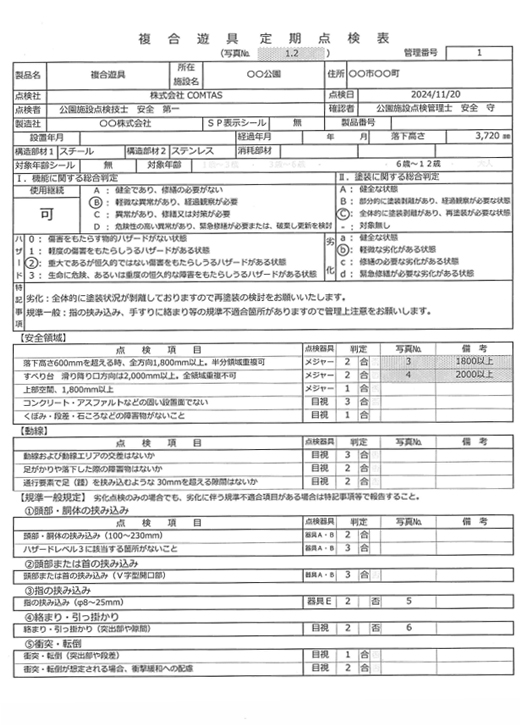 複合遊具定期点検表
(写真№ 1.2 ) 管理番号 1
製品名 複合遊具 所在施設名 〇〇公園 住所 〇〇市〇〇町
点検社 株式会社 COMTAS 点検日 2024/11/20
点検者 公園施設点検技士 安全 第一 確認者 公園施設点検管理士 安全 守
製造社 〇〇株式会社 ＳＰ表示シール 無 製品番号
設置年月 経過年月 年 月 落下高さ 3,720 mm
構造部材1 スチール 構造部材2 ステンレス 消耗部材
対象年齢シール 無 対象年齢 6歳～12歳
Ⅰ．機能に関する総合判定 Ⅱ．塗装に関する総合判定
使用継続 可
A： 健全であり、修繕の必要がない
B： 軽微な異常があり、経過観察が必要
C： 異常があり、修繕又は対策が必要
D： 危険性の高い異常があり、緊急修繕が必要または、破棄し更新を検討
A： 健全な状態
B： 部分的に塗装剥離があり、経過観察が必要な状態
C： 全体的に塗装剥離があり、再塗装が必要な状態
-： 対象無し
ハザード
0： 傷害をもたらす物的ハザードがない状態
1： 軽度の傷害をもたらしうるハザードがある状態
2： 重大であるが恒久的ではない傷害をもたらしうるハザードがある状態
3： 生命に危険、あるいは重度の恒久的な障害をもたらしうるハザードがある状態
劣化
a： 健全な状態
b： 軽微な劣化がある状態
c： 修繕の必要な劣化がある状態
d： 緊急修繕が必要な劣化がある状態
特記事項
劣化：全体的に塗装状況が剥離しておりますので再塗装の検討をお願いいたします。
規準一般：指の挟み込み、手すりに絡まり等の規準不適合箇所がありますので管理上注意をお願いします。
【安全領域】
点検項目 点検器具 判定 写真№ 備考
落下高さ600mmを超える時、全方向1,800mm以上。半分領域重複可 メジャー 2 合 3 1800以上
すべり台 滑り降り口方向は2,000mm以上。全領域重複不可 メジャー 2 合 4 2000以上
上部空間、1,800mm以上 メジャー 1 合
コンクリート・アスファルトなどの固い設置面でない 目視 3 合
くぼみ・段差・石ころなどの障害物がないこと 目視 1 合
【動線】
点検項目 点検器具 判定 写真№ 備考
動線および動線エリアの交差はないか 目視 3 合
足がかりや落下した際の障害物はないか 目視 2 合
通行要素で足（踵）を挟み込むような 30mmを超える隙間はないか 目視 2 合
【規準一般規定】 劣化点検のみの場合でも、劣化に伴う規準不適合項目がある場合は特記事項等で報告すること。
①頭部・胴体の挟み込み
点検項目 点検器具 判定 写真№ 備考
頭部・胴体の挟み込み（100～230mm） 器具A・B 2 合
ハザードレベル3に該当する箇所がないこと 器具A・B 3 合
②頭部または首の挟み込み
頭部または首の挟み込み（Ｖ字型開口部） 器具A・B 3 合
③指の挟み込み
指の挟み込み（φ8～25mm） 器具Ｅ 2 否 5
④絡まり・引っ掛かり
絡まり・引っ掛かり（突出部や隙間） 目視 2 否 6
⑤衝突・転倒
衝突・転倒（突出部や段差） 目視 1 合
衝突・転倒が想定される場合、衝撃緩和への配慮 目視 2 合